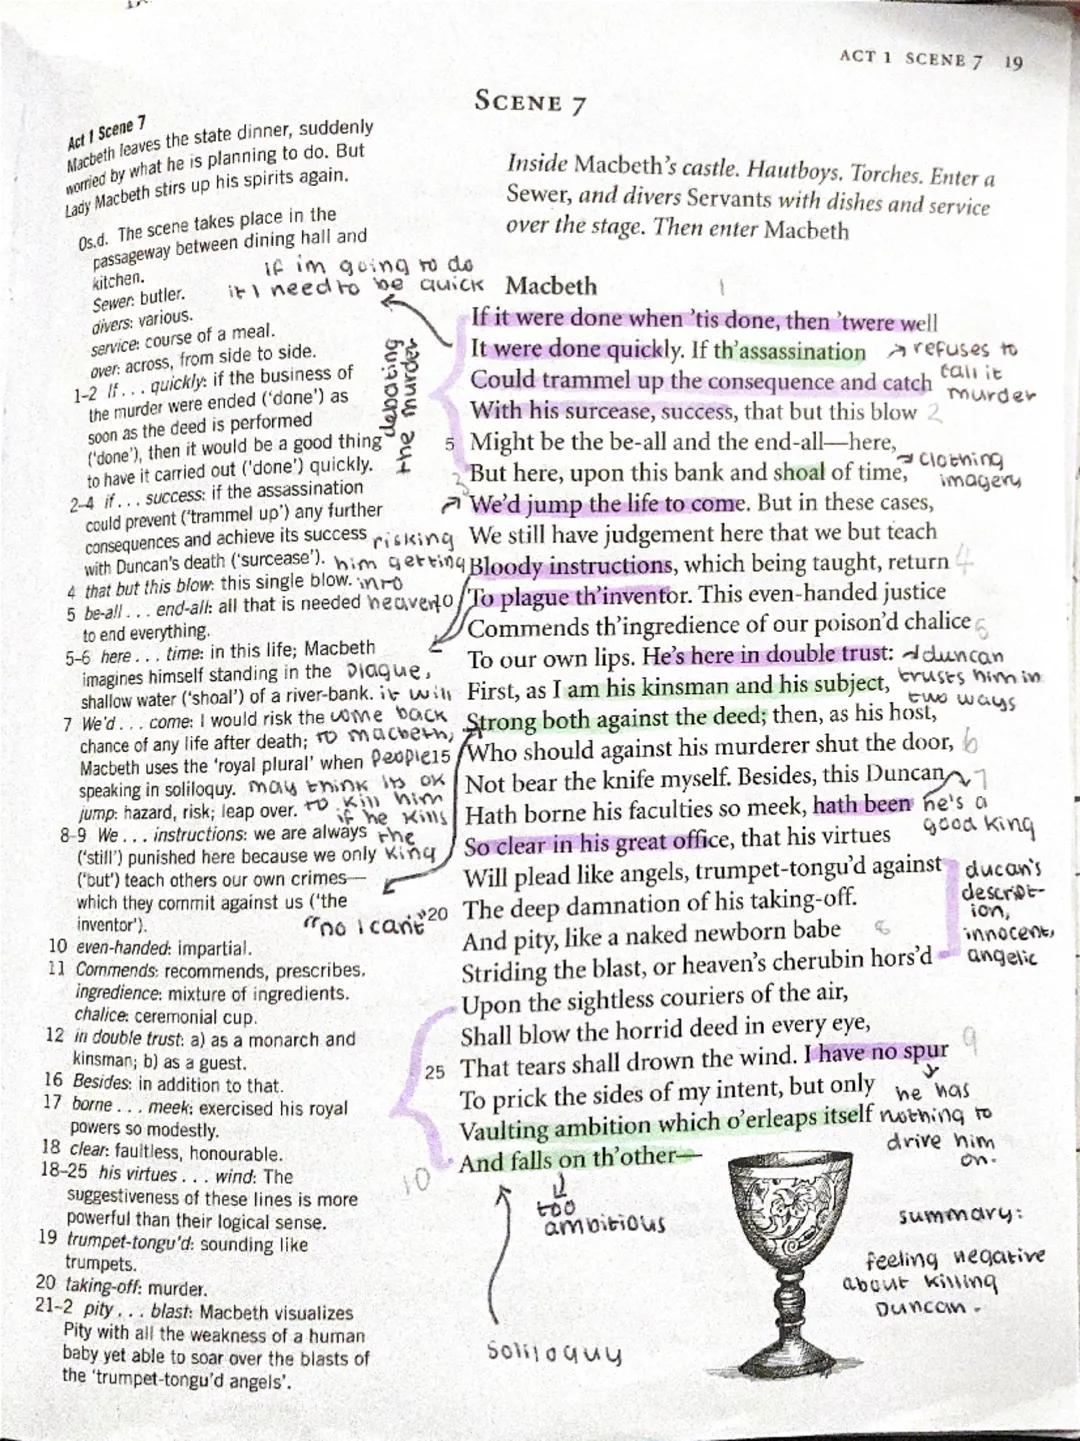 ACT 1 SCENE 7 19
SCENE 7
Act 1 Scene 7
Macbeth leaves the state dinner, suddenly
worried by what he is planning to do. But
Lady Macbeth stirs up his spirits again.
0s.d. The scene takes place in the
passageway between dining hall and
kitchen.
Sewer: butler.
divers: various.
service: course of a meal.
over: across, from side to side.
1-2 If . . . quickly: if the business of
the murder were ended ('done') as
soon as the deed is performed
('done'), then it would be a good thing
to have it carried out ('done') quickly.
2-4 if . . . success: if the assassination
could prevent ('trammel up') any further
consequences and achieve its success
with Duncan's death ('surcease').
4 that but this blow: this single blow.
5 be-all . . . end-all: all that is needed
to end everything.
5-6 here . . . time: in this life; Macbeth
imagines himself standing in the
shallow water ('shoal') of a river-bank.
7 We'd . . . come: I would risk the
chance of any life after death;
Macbeth uses the 'royal plural' when
speaking in soliloquy.
jump: hazard, risk; leap over.
8-9 We . . . instructions: we are always
('still') punished here because we only
('but') teach others our own crimes—
which they commit against us ('the
inventor').
10 even-handed: impartial.
11 Commends: recommends, prescribes.
ingredience: mixture of ingredients.
chalice: ceremonial cup.
12 in double trust: a) as a monarch and
kinsman; b) as a guest.
16 Besides: in addition to that.
17 borne . . . meek: exercised his royal
powers so modestly.
18 clear: faultless, honourable.
18-25 his virtues . . . wind: The
suggestiveness of these lines is more
powerful than their logical sense.
19 trumpet-tongu'd: sounding like
trumpets.
20 taking-off: murder.
21-2 pity . . . blast: Macbeth visualizes
Pity with all the weakness of a human
baby yet able to soar over the blasts of
the 'trumpet-tongu'd angels'.
if im going to do
it I need to be quick
debating
the murder
risking
him getting
into
heaven
Plague,
it will
come back
to macbeth,
People
may think its ok
to kill him
if he kills
the
king
"no I can't"
Inside Macbeth's castle. Hautboys. Torches. Enter a
Sewer, and divers Servants with dishes and service
over the stage. Then enter Macbeth
Macbeth
1
If it were done when 'tis done, then 'twere well
It were done quickly. If th'assassination
Could trammel up the consequence and catch
With his surcease, success, that but this blow 2
5 Might be the be-all and the end-all—here,
3 But here, upon this bank and shoal of time,
We'd jump the life to come. But in these cases,
We still have judgement here that we but teach
Bloody instructions, which being taught, return 4
10 To plague th'inventor. This even-handed justice
Commends th'ingredience of our poison'd chalice 5
To our own lips. He's here in double trust:
First, as I am his kinsman and his subject,
Strong both against the deed; then, as his host,
15 Who should against his murderer shut the door, 6
Not bear the knife myself. Besides, this Duncan 7
Hath borne his faculties so meek, hath been
So clear in his great office, that his virtues
Will plead like angels, trumpet-tongu'd against
20 The deep damnation of his taking-off.
And pity, like a naked newborn babe 8
Striding the blast, or heaven's cherubin hors'd
Upon the sightless couriers of the air,
Shall blow the horrid deed in every eye,
25 That tears shall drown the wind. I have no spur 9
To prick the sides of my intent, but only
Vaulting ambition which o'erleaps itself
And falls on th'other—
10
refuses to
call it
murder
clothing
imagery
duncan
trusts him in
two ways
he's a
good king
ducan's
descript-
ion,
innocent,
angelic
he has
nothing to
drive him
on.
too
ambitious
soliloquy
summary:
feeling negative
about killing
Duncan.